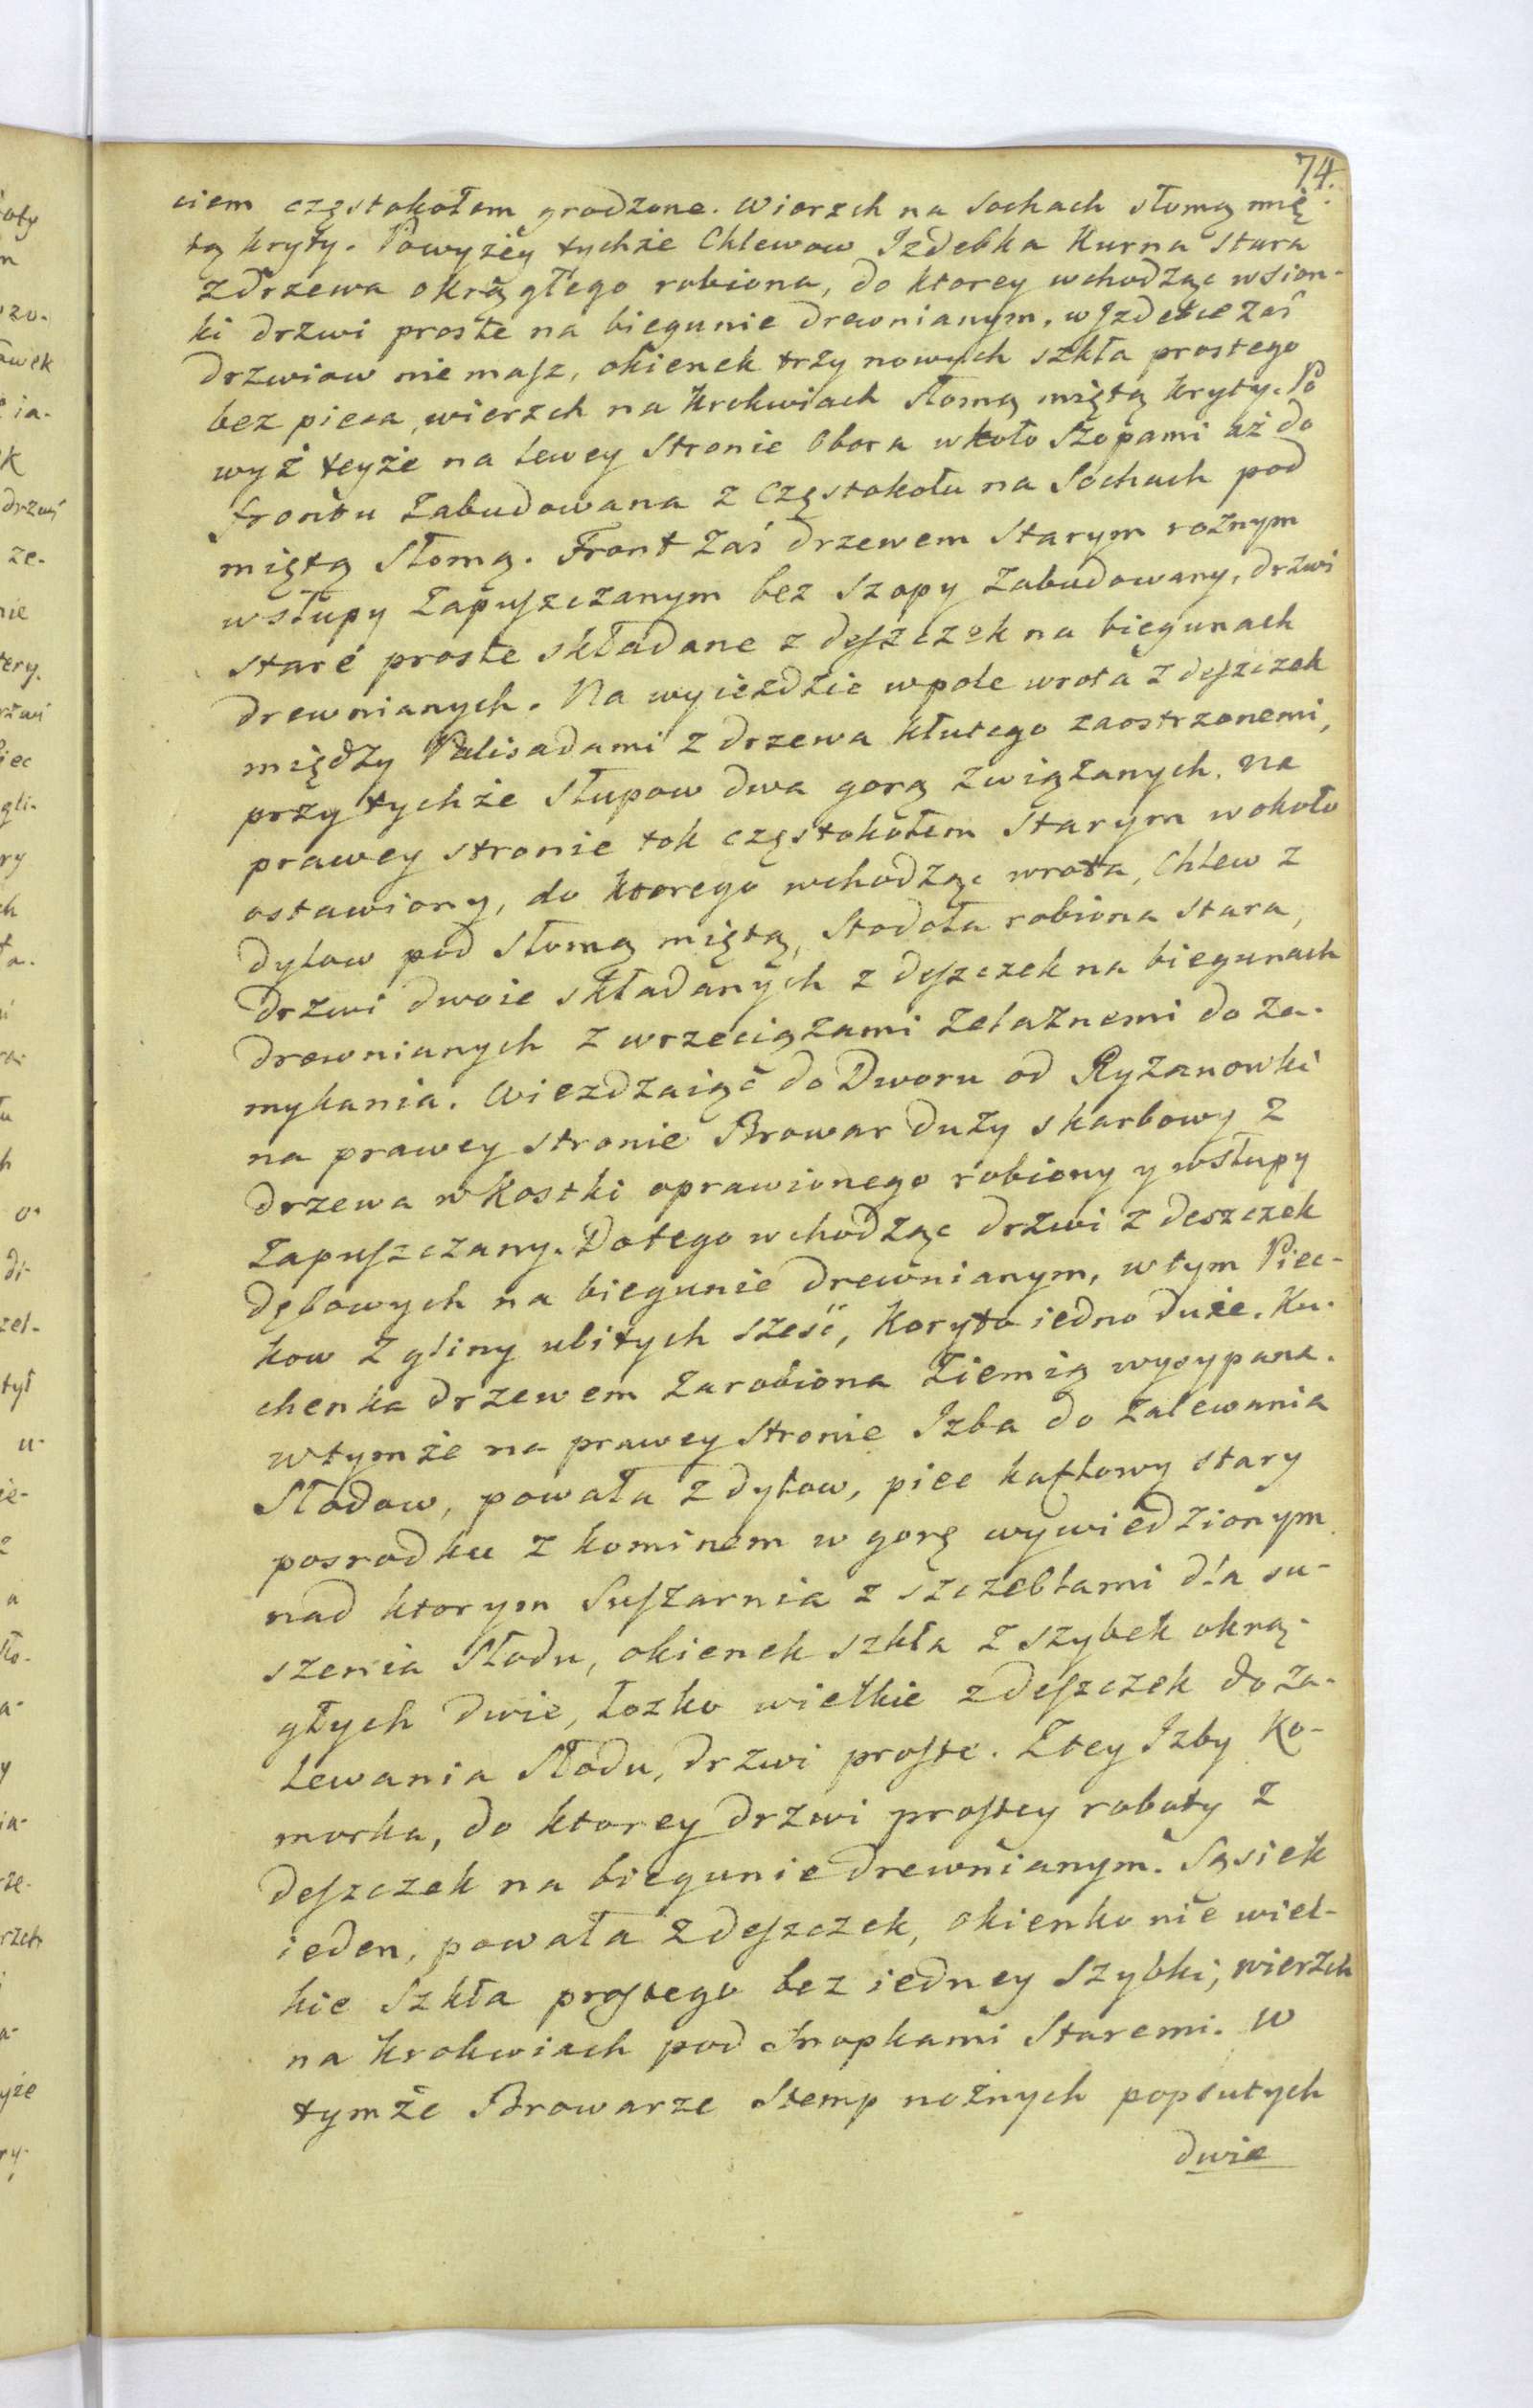 74.
ciem częstokołem grodzone. Wierzch na Sochach słomą mię-
tą kryty. Powyżey tychże Chlewow Izdebka Kurna stara
z drzewa okrągłego robiona, do ktorey wchodząc w sion-
ki drzwi proste na biegunie drewnianym, w Izdebce zaś
drzwiow niemasz, okienek trzy nowych szkła prostego
bez pieca, wierzch na krokwiach słomą miętą kryty. Po
wyż teyże na lewey Stronie Obora wkoło Szopami aż do
frontu zabudowana z Częstokołu na Sochach pod
miętą Słomą. Front zaś drzewem Starym rożnym
w słupy zapuszczanym bez Szopy zabudowany, drzwi
staré proste składane z deszczek na biegunach
drewnianych. Na wyieździe w pole wrota z deszczek
między Palisadami z drzewa kłutego zaostrzonemi,
przy tychże Słupow dwa gorą związanych. Na
prawey stronie tok częstokołem Starym wokoło
ostawiony, do ktorego wchodząc wrota, Chlew z
dylow pod słomą miętą, Stodoła robiona stara,
drzwi dwoie składanych z deszczek na biegunach
drewnianych z wrzeciązami żelaznemi do za-
mykania. Wiezdzaiąc do Dworu od Ryzanowki
na prawey stronie Browar duży skarbowy z
drzewa w kostki oprawionego robiony y w słupy
zapuszczany. Do tego wchodząc drzwi z deszczek
dębowych na biegunie drewnianym, w tym Piec-
kow z gliny ubitych sześć, Koryto iedno duże. Ku-
chenka drzewem zarobiona Ziemią wysypana.
w tymże na prawey Stronie Izba do zalewania
Słodow, powała z dylow, piec kaflowy stary
posrodku z kominem w gorę wywiedzionym
nad ktorym Suszarnia z szczeblami dla su-
szenia Słodu, okienek szkła z szybek okrą-
głych dwie, łozko wielkie z deszczek do za-
lewania Słodu, drzwi proste. Z tey Izby Ko-
morka, do ktorey drzwi prostey roboty z
deszczek na biegunie drewnianym. Sąsiek
ieden, powała z deszczek, okienko nie wiel-
kie Szkła prostego bez iedney Szybki, wierzch
na krokwiach pod Snopkami Staremi. W
tymże Browarze Stemp nożnych popsutych
dwie